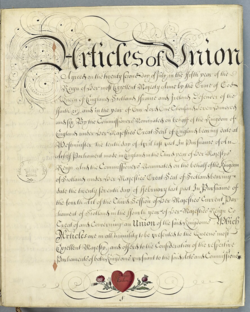 Articles of Union
Agreed on the twenty Second day of July in the fifth year of the
Reign of Her most Excellent Majesty Anne by the Grace of God
Queen of England Scotland France and Ireland Defender of the
Faith &c and in the year of Our Lord One thousand Seven hundred
and six By the Commissioners Nominated on behalf of the Kingdom
of England under Her Majesties Great Seal of England bearing date at
Westminster the tenth day of April last past In pursuance of an
Act of Parliament made in England in the third year of Her Majesties
Reign and the Commissioners Nominated on the behalf of the Kingdom
of Scotland under Her Majesties Great Seal of Scotland bearing
date the twenty seventh day of February last past In Pursuance of
the fourth Act of the third Session of the
Parliament
of Scotland in the
to Treat of and Concerning an Union of the said Kingdoms Which
Articles are in all humility to be presented to the Queens most
Excellent Majesty and offered to the Consideration of the respective
Parliaments of both Kingdoms pursuant to the said Acts and Commissions